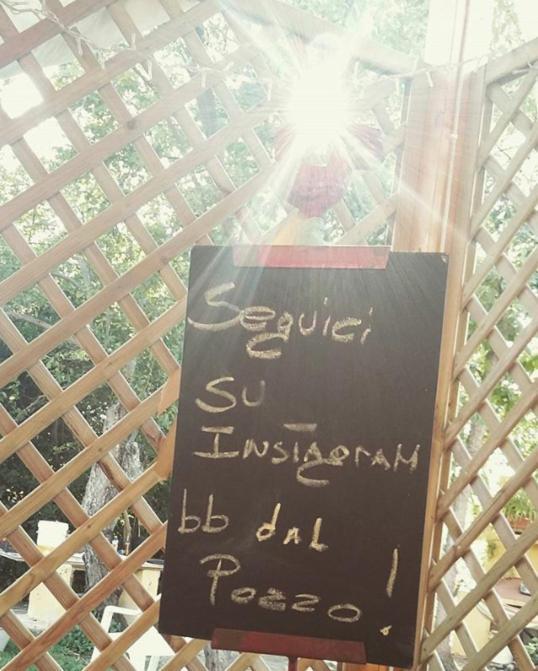 Seguici
su
Instagram
bb dal
Pozzo!